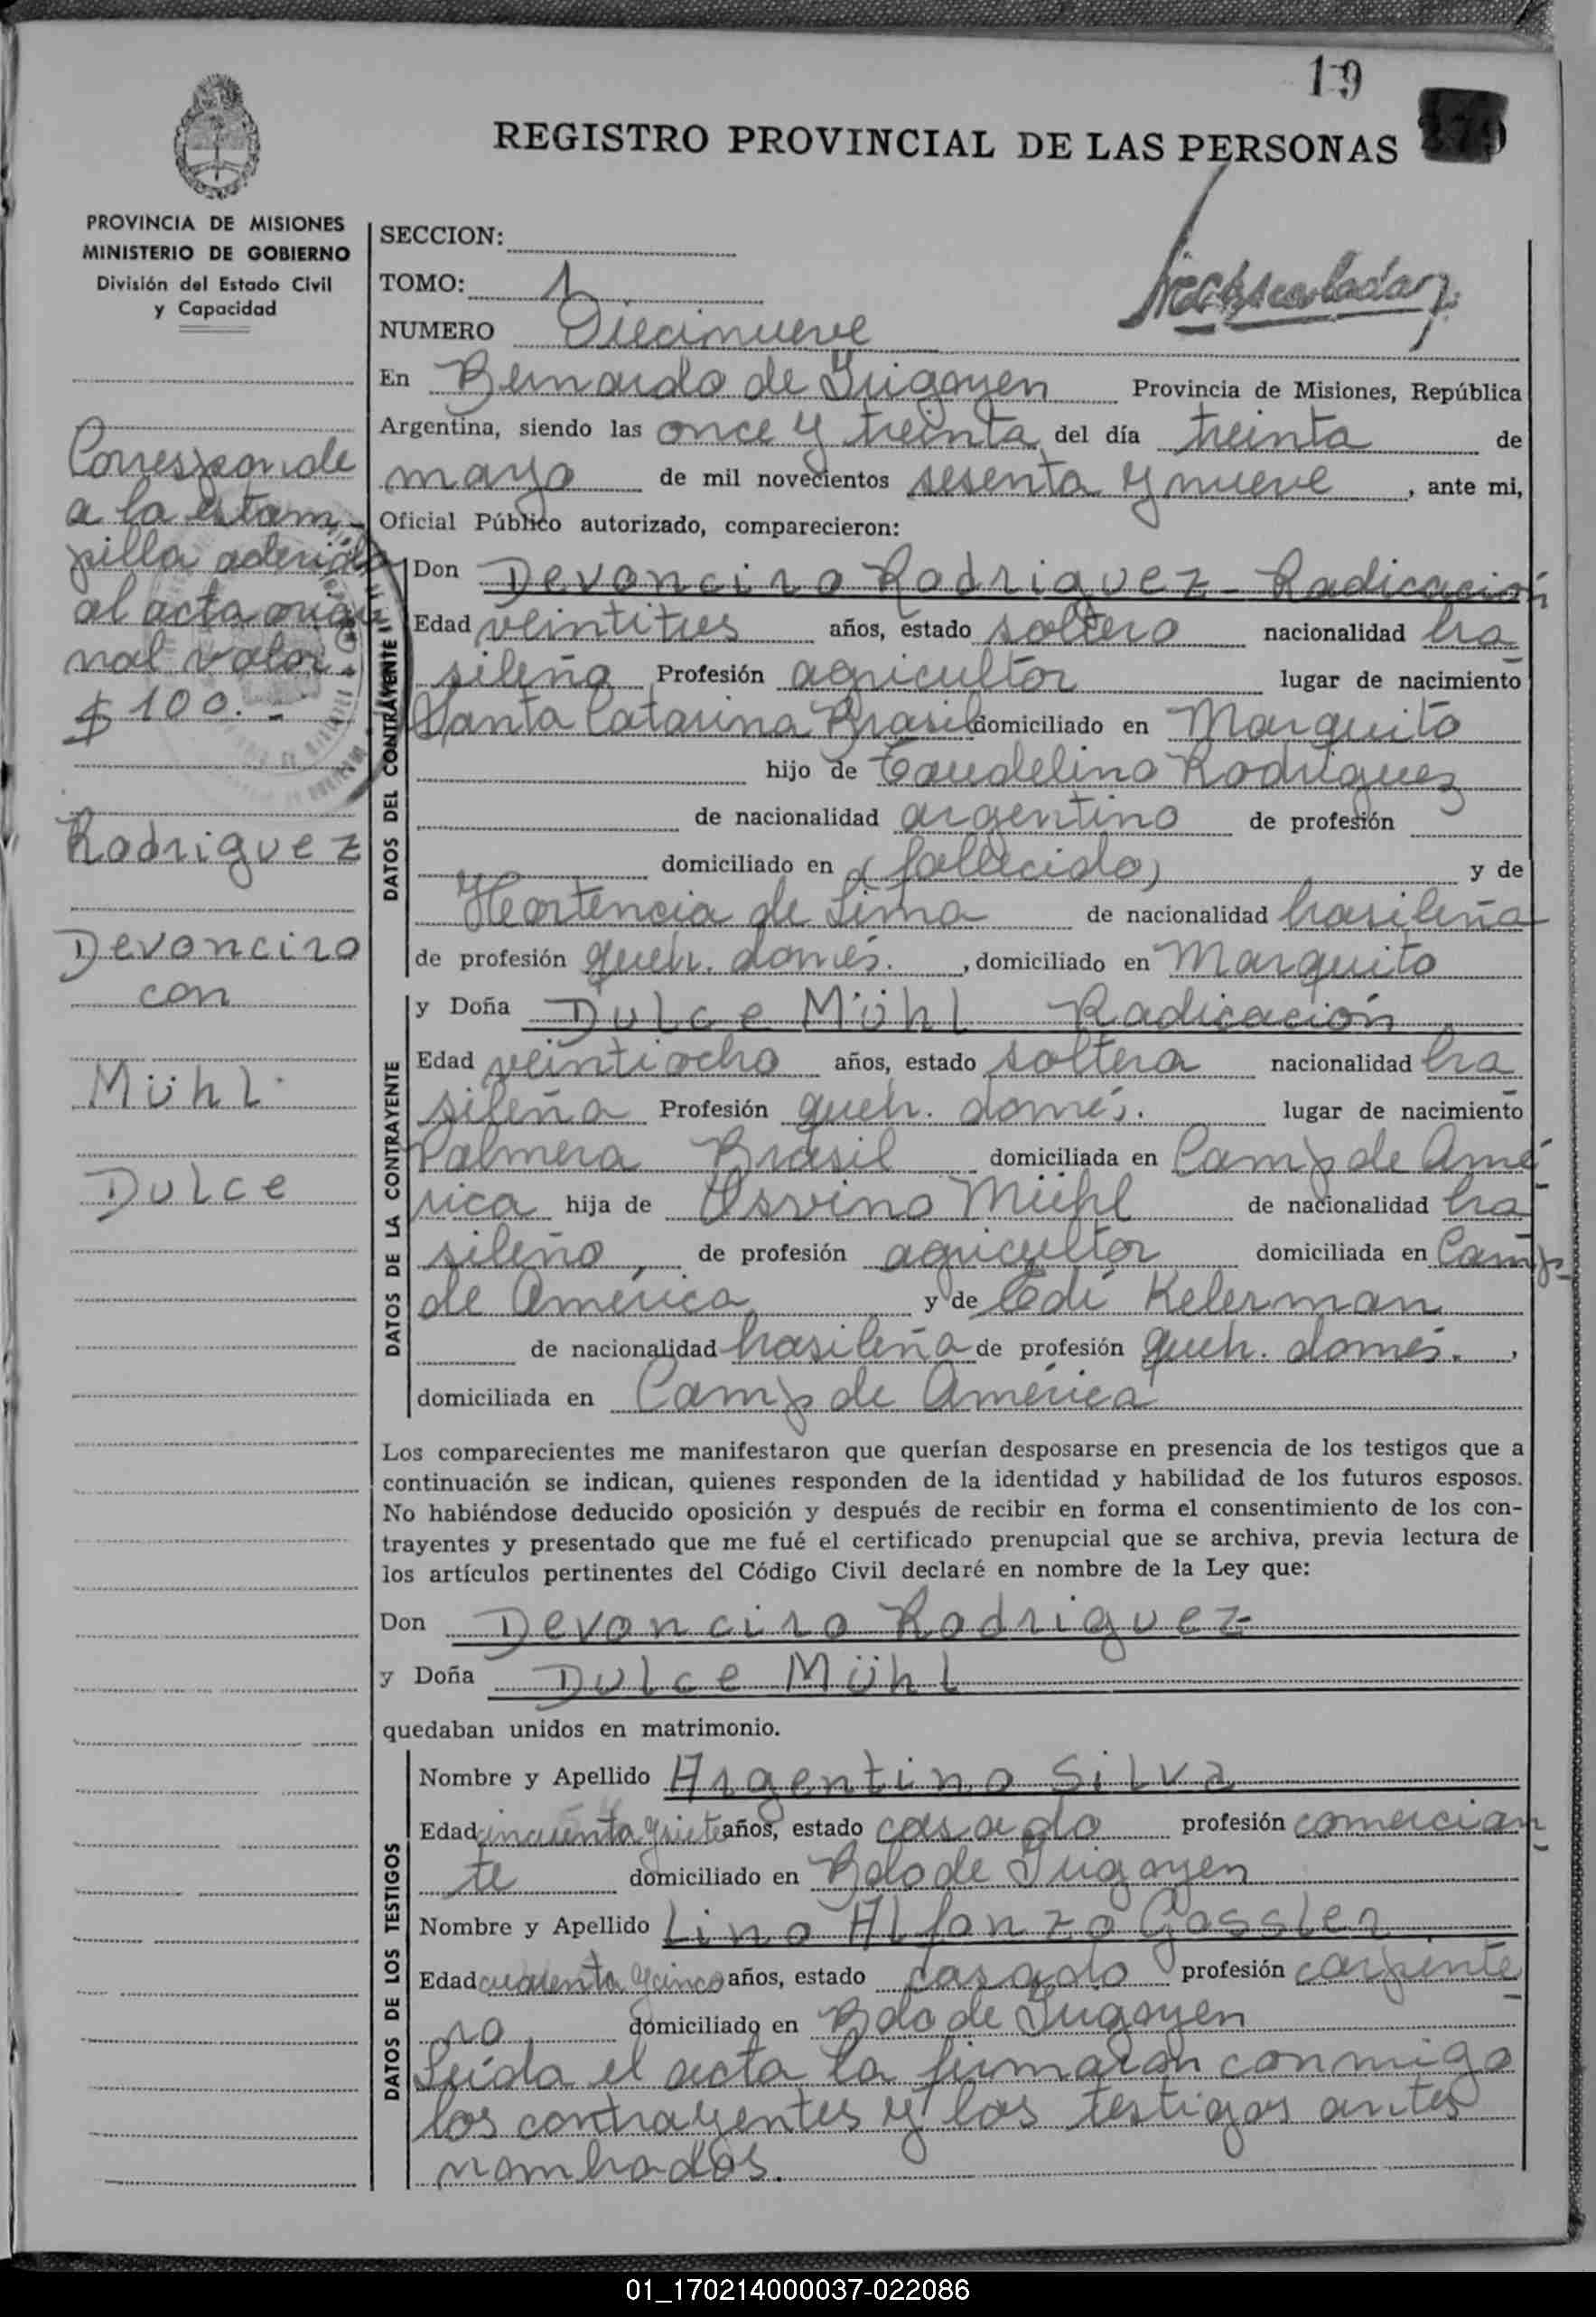 19
REGISTRO PROVINCIAL DE LAS PERSONAS
PROVINCIA DE MISIONES
MINISTERIO DE GOBIERNO
División del Estado Civil
y Capacidad
Corresponde
a la estam-
pilla aderida
al acta origi
nal valor
$ 100.-
Rodriguez
Devonciro
con
Mühl
Dulce
SECCION:
TOMO: 1
NUMERO Diecinueve
En Bernardo de Irigoyen Provincia de Misiones, República
Argentina, siendo las once y treinta del día treinta de
mayo de mil novecientos sesenta y nueve, ante mi,
Oficial Público autorizado, comparecieron:
DATOS DEL CONTRAYENTE
Don Devonciro Rodriguez - Radicación
Edad veintitres años, estado soltero nacionalidad bra
sileña Profesión agricultor lugar de nacimiento
Santa Catarina Brasil domiciliado en Marquito
hijo de Rodriguez
de nacionalidad argentino de profesión
domiciliado en (fallecido) y de
Hortencia de Lima de nacionalidad brasileña
de profesión queh. domés. , domiciliado en Marquito
DATOS DE LA CONTRAYENTE
y Doña Dulce Mühl Radicación
Edad veintiocho años, estado soltera nacionalidad bra
sileña Profesión queh. domés. lugar de nacimiento
Palmera Brasil domiciliada en Camp de Amé
rica hija de Osvino Mühl de nacionalidad bra
sileño, de profesión agricultor domiciliada en Camp
de América y de Edi Kelerman
de nacionalidad brasileña de profesión queh. domés. ,
domiciliada en Camp de América
Los comparecientes me manifestaron que querían desposarse en presencia de los testigos que a
continuación se indican, quienes responden de la identidad y habilidad de los futuros esposos.
No habiéndose deducido oposición y después de recibir en forma el consentimiento de los con-
trayentes y presentado que me fué el certificado prenupcial que se archiva, previa lectura de
los artículos pertinentes del Código Civil declaré en nombre de la Ley que:
Don Devonciro Rodriguez
y Doña Dulce Mühl
quedaban unidos en matrimonio.
DATOS DE LOS TESTIGOS
Nombre y Apellido Argentino Silva
Edad cincuenta y siete años, estado casado profesión comercian
te domiciliado en Bdo de Irigoyen
Nombre y Apellido Lino Alfonzo Gossler
Edad cuarenta y cinco años, estado casado profesión carpinte
ro domiciliado en Bdo de Irigoyen
Leída el acta la firmaron conmigo
los contrayentes y los testigos antes
nombrados.
01_170214000037-022086